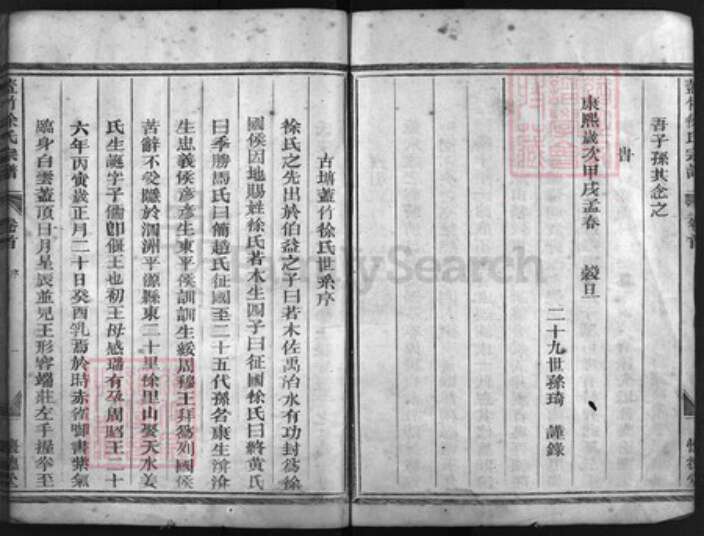 吾子孫其念之
旹
康熙歲次甲戌孟春 穀旦
二十九世孫琦 謹錄
古壙蓋竹徐氏世系序
徐氏之先出於伯益之子曰若木佐禹治水有功封為徐
國侯因地賜姓徐氏若木生四子曰征國徐氏曰將黃氏
曰季勝馬氏曰簡趙氏征國至二十五代孫名康生淪淪
生忠義侯彥彥生東平侯訓訓生綏周穆王拜為列國侯
苦辭不受隱於泗洲平源縣東二十里徐里山娶天水姜
氏生誕字子儒即偃王也初王母感瑞有孕周昭王二十
六年丙寅歲正月二十日癸酉乳焉於時赤雀啣書紫氣
臨身白雲蓋頂日月星辰並見王形容端莊左手握拳至
蓋竹徐氏宗譜
卷首
序
FamilySearch